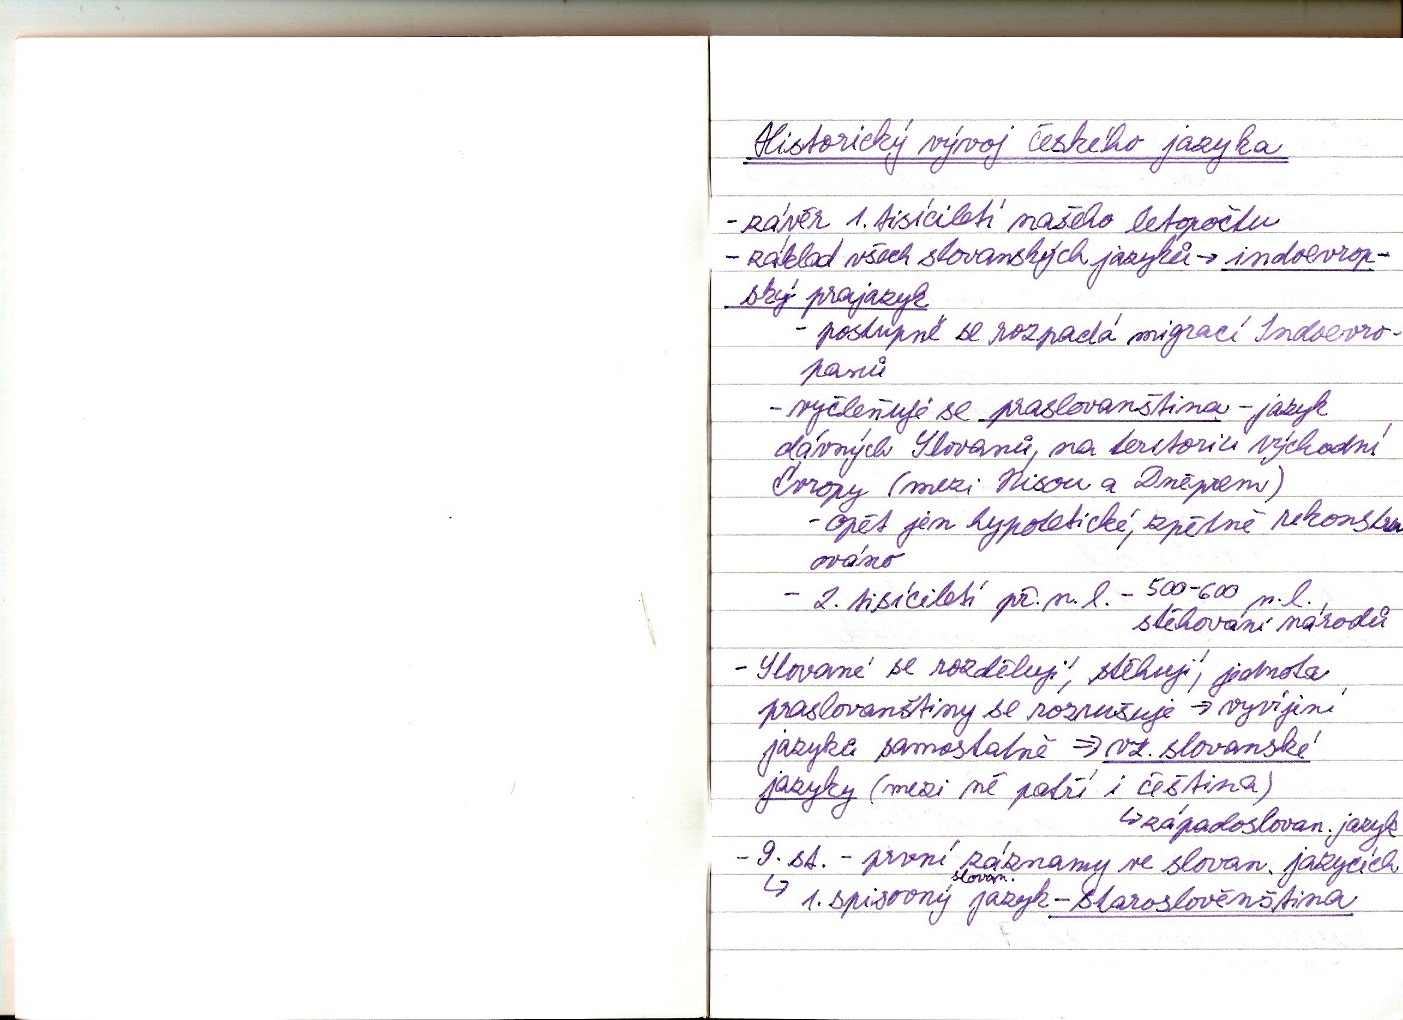 Historický vývoj českého jazyka
- závěr 1. tisíciletí našeho letopočtu
- základ všech slovanských jazyků → indoevrop-
ský prajazyk
- postupně se rozpadá migrací Indoevro-
panů
- vyčleňuje se praslovanština - jazyk
dávných Slovanů, na teritoriu východní
Evropy (mezi Vislou a Dněprem)
- opět jen hypotetické, zpětně rekonstru
ováno
- 2. tisíciletí př. n. l. - 500-600 n. l.
stěhování národů
- Slované se rozdělují, stěhují, jednota
praslovanštiny se rozrušuje → vyvíjení
jazyka samostatně ⇒ vz. slovanské
jazyky (mezi ně patří i čeština)
↳ západoslovan. jazyk
- 9. st. - první záznamy ve slovan. jazycích
↳ 1. spisovný slovan. jazyk - staroslověnština